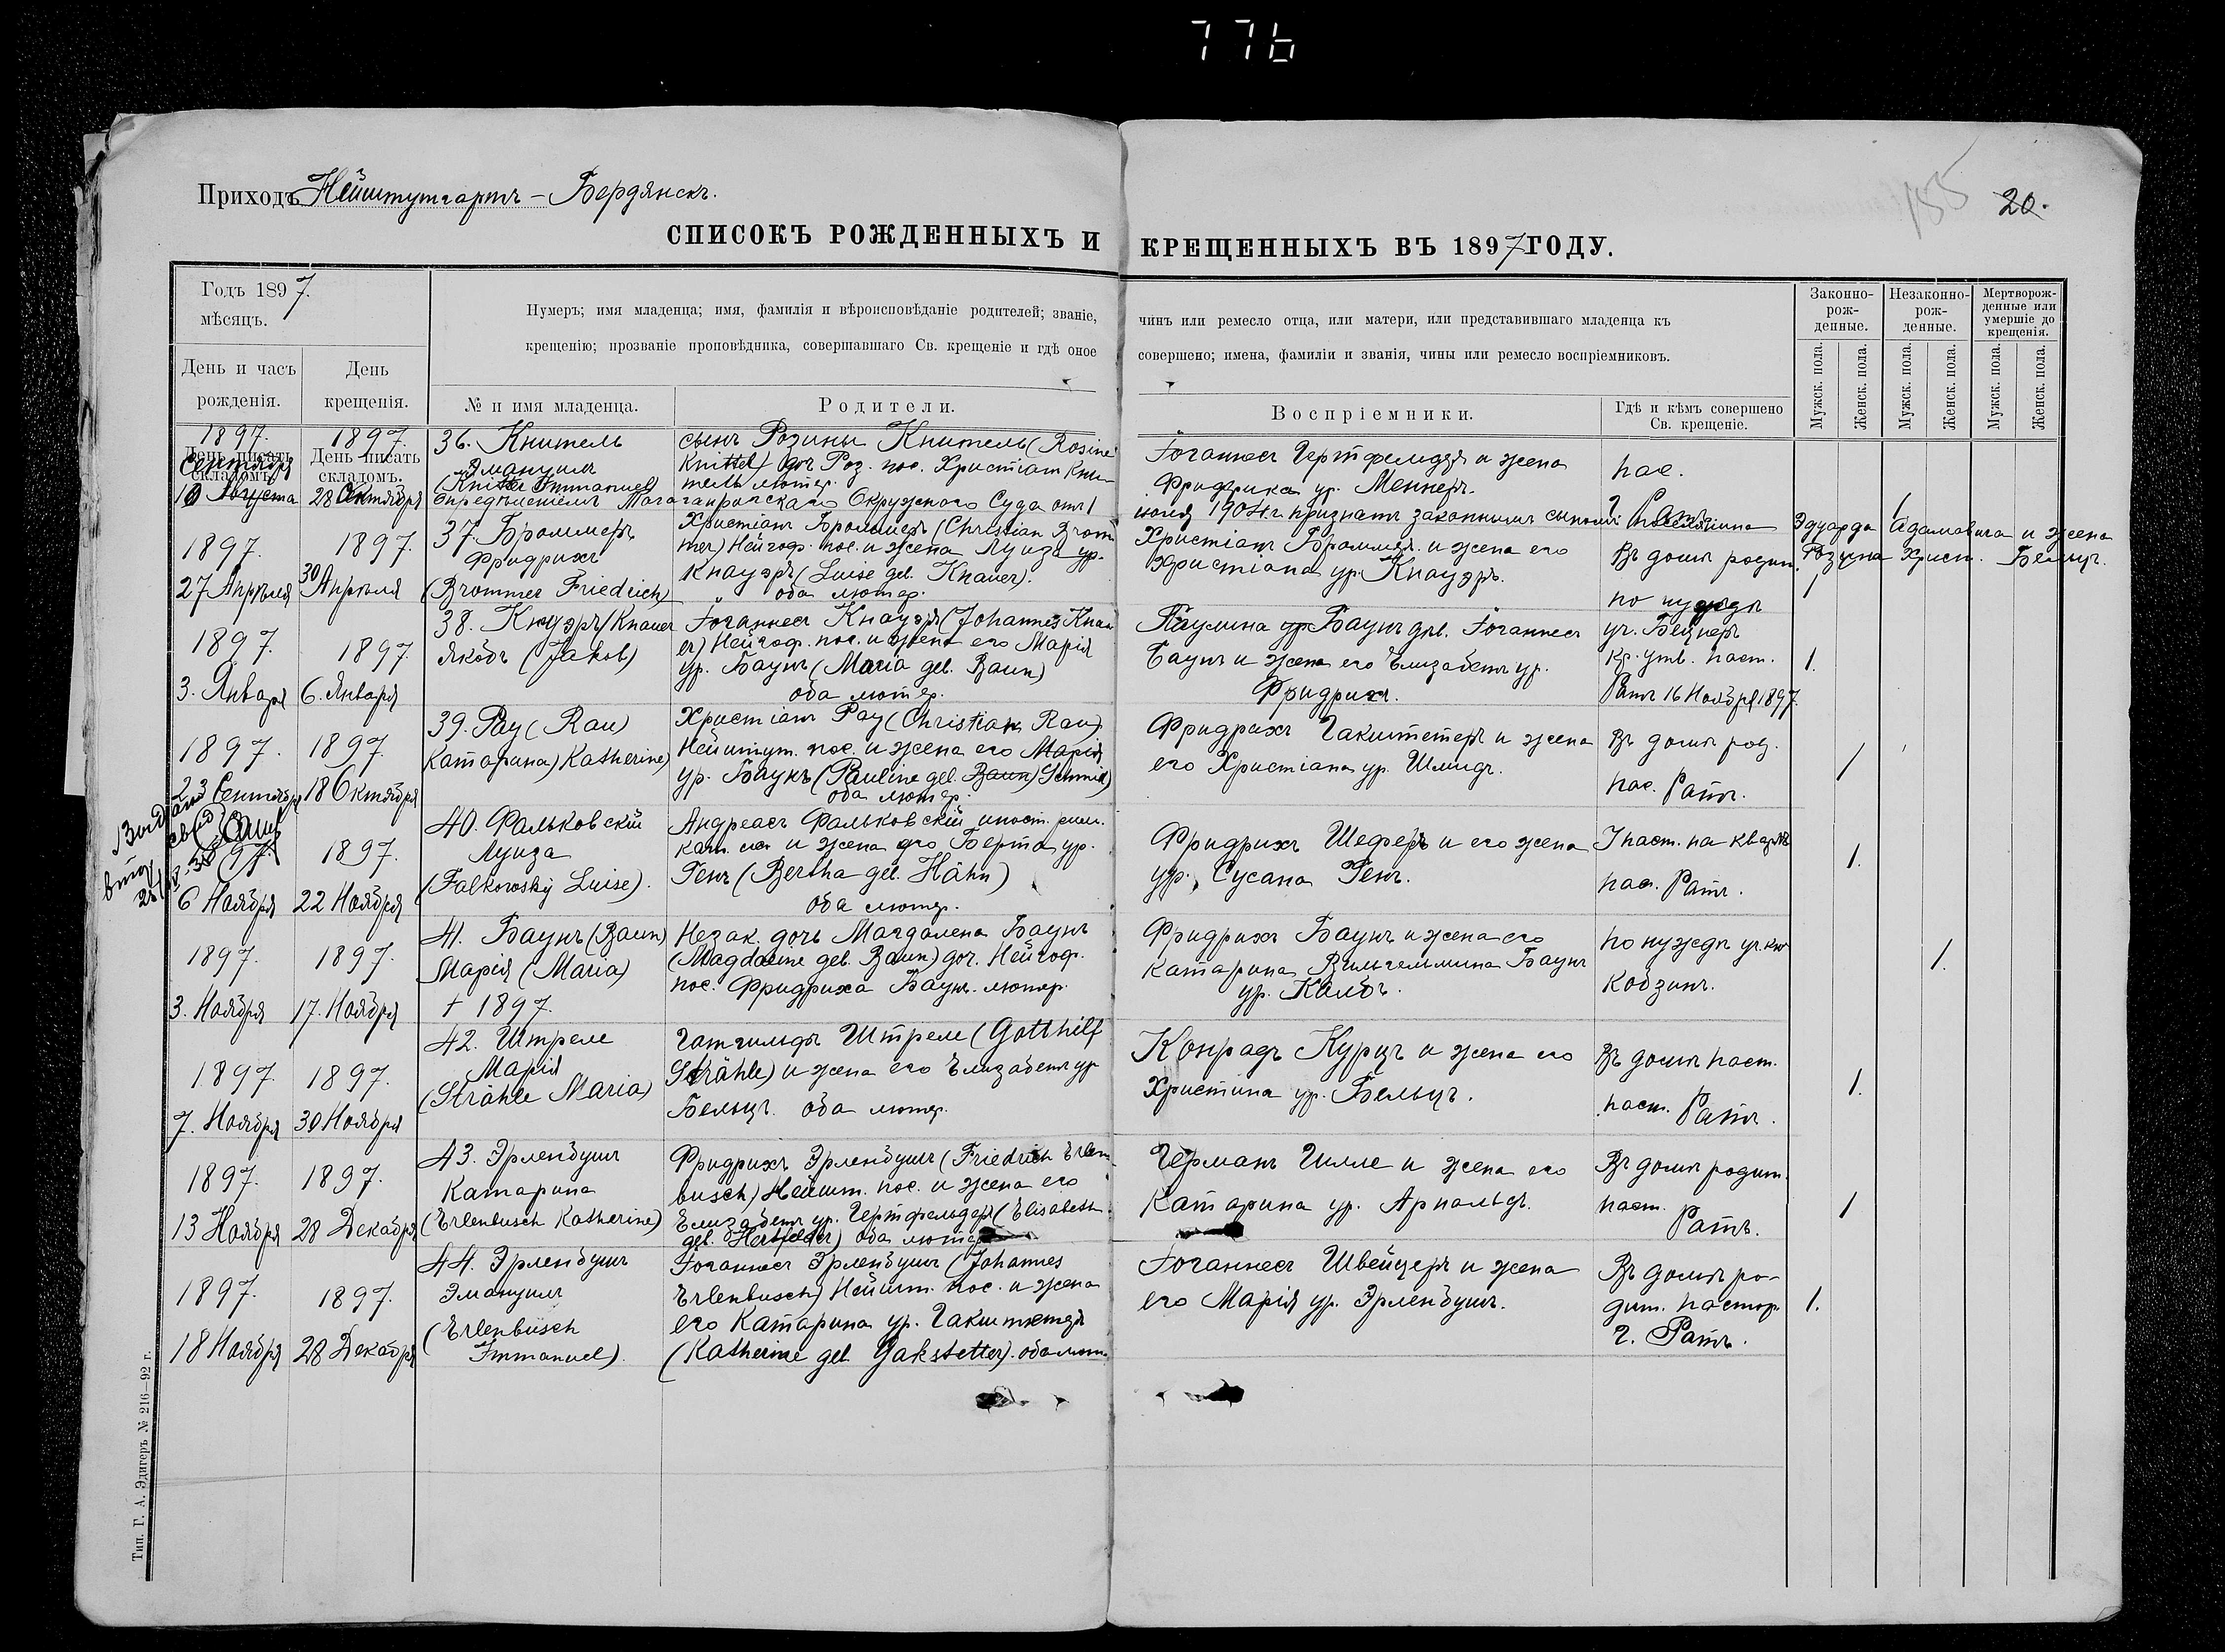 776
Приходъ Нейштутгартъ – Бердянскъ.
155
20.
СПИСОКЪ РОЖДЕННЫХЪ И КРЕЩЕННЫХЪ ВЪ 1897 ГОДУ.
Годъ 1897.
мѣсяцъ.
Нумеръ; имя младенца; имя, фамилія и вѣроисповѣданіе родителей; званіе, чинъ или ремесло отца, или матери, или представившаго младенца къ
крещенію; прозваніе проповѣдника, совершавшаго Св. крещеніе и гдѣ оное совершено; имена, фамиліи и званія, чины или ремесло воспріемниковъ.
Законно-
рож-
денные.
Незаконно-
рож-
денные.
Мертворож-
денные или
умершіе до
крещенія.
День и часъ
рожденія.
День
крещенія.
№ и имя младенца.
Родители.
Воспріемники.
Гдѣ и кѣмъ совершено
Св. крещеніе.
Мужск. пола.
Женск. пола.
Мужск. пола.
Женск. пола.
Мужск. пола.
Женск. пола.
День писать
складомъ.
День писать
складомъ.
1897.
Сентября
10 Августа
1897.
28 Октября
36. Книтель
Эмануилъ
(Knittel Immanuel)
сынъ Розины Книтель (Rosine
Knittel) доч. Роз. пос. Христіан Кни-
тель лютер.
Іоганнесъ Гертфельдеръ и жена
Фридрика ур. Меннеръ.
пас.
Г. Ратъ
1
опредѣленіемъ Таганрогскаго Окружнаго Суда отъ 1
іюля 1904 г. признанъ законнымъ сыномъ поселянина Эдуарда Адамовича и жена
Розина Христ. Бельцъ.
1897.
27 Апрѣля
1897.
30 Апрѣля
37. Броммеръ
Фридрихъ
(Brommer Friedrich)
Христіанъ Броммеръ (Christian Brom
mer) Нейгоф. пос. и жена Луиза ур.
Кнауэръ (Luise geb. Knauer).
оба лютер.
Христіанъ Броммеръ и жена его
Христіана ур. Кнауэръ.
Въ домѣ родит.
1
1897.
3. Января
1897.
6. Января
38. Кнауэръ (Knauer
Якобъ (Jakob)
Іоганнесъ Кнауэръ (Johannes Knau
er) Нейгоф. пос. и жена его Марія
ур. Баунъ (Maria geb. Baun)
оба лютер.
Паулина ур. Баунъ дѣв. Іоганнесъ
Баунъ и жена его Елизабетъ ур.
Фридрихъ.
по нуждѣ
уч. Бецнеръ
Кр. утв. паст.
Ратъ 16 Ноября 1897.
1.
1897.
23 Сентября
1897.
18 Октября
39. Рау (Rau)
Катарина) Katherine)
Христіанъ Рау (Christian Rau)
Нейштут. пос. и жена его Марія
ур. Баунъ (Pauline geb. Baun) Schmidt)
оба лютер.
Фридрихъ Гакштетеръ и жена
его Христіана ур. Шмидъ.
Въ домѣ род.
пас. Ратъ.
1
1897.
6 Ноября
1897.
22 Ноября
40. Фальковскій
Луиза
(Falkowsky Luise).
Андреасъ Фальковскій иност. рим.
кат. и жена его Берта ур.
Генъ (Bertha geb. Hähn)
оба лютер.
Фридрихъ Шеферъ и его жена
ур. Сусана Генъ.
паст. на квар.
пас. Ратъ.
1.
1897.
3. Ноября
1897.
17. Ноября
41. Баунъ (Baun)
Марія (Maria)
† 1897.
Незак. дочь Магдалена Баунъ
(Magdalene geb. Baun) доч. Нейгоф.
пос. Фридриха Баунъ. лютер.
Фридрихъ Баунъ и жена его
Катарина Вильгельмина Баунъ
ур. Калбъ.
по нуждѣ уч. кю
Кобзинъ.
1.
1897.
7. Ноября
1897.
30 Ноября
42. Штреле
Марія
(Strähle Maria)
Готгильфъ Штреле (Gotthilf
Strähle) и жена его Елизабетъ ур
Бельцъ. оба лютер.
Конрадъ Курцъ и жена его
Христина ур. Бельцъ.
Въ домѣ паст.
паст. Ратъ.
1.
1897.
13 Ноября
1897.
28 Декабря
43. Эрленбушъ
Катарина
(Erlenbusch Katherine)
Фридрихъ Эрленбушъ (Friedrich Erlen
busch) Нейшт. пос. и жена его
Елизабетъ ур. Гертфельдеръ (Elisabeth
geb. Hertfelder) оба лютер.
Германъ Гилле и жена его
Катарина ур. Арнольдъ.
Въ домѣ родит.
паст. Ратъ.
1
1897.
18 Ноября
1897.
28 Декабря
44. Эрленбушъ
Эмануилъ
(Erlenbusch
Immanuel).
Іоганнесъ Эрленбушъ (Johannes
Erlenbusch) Нейшт. пос. и жена
его Катарина ур. Гакштетеръ
(Katherine geb. Gakstetter). оба лют.
Іоганнесъ Швейцеръ и жена
его Марія ур. Эрленбушъ.
Въ домѣ ро-
дит. пастор.
Г. Ратъ.
1.
Тип. Г. А. Эдигеръ № 216–92 г.